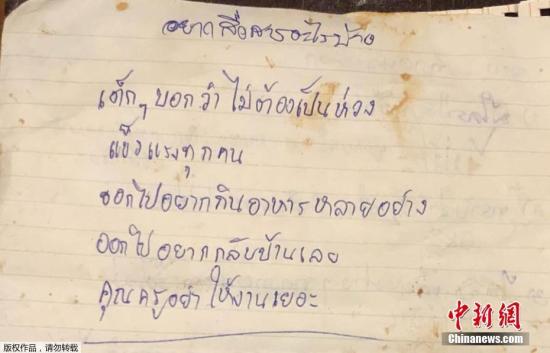 อยากสื่อสารอะไรบ้าง
เด็กๆ บอกว่า ไม่ต้องเป็นห่วง
แข็งแรงทุกคน
ออกไปอยากกินอาหารหลายอย่าง
ออกไปอยากกลับบ้านเลย
คุณครูอย่าให้งานเยอะ
中新网
Chinanews.com
版权作品，请勿转载